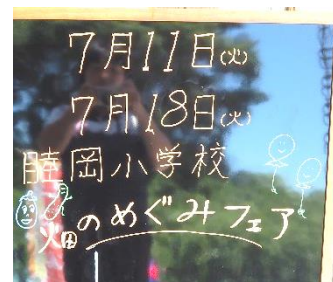 7月11日(火)
7月18日(火)
暁岡小学校
畑のめぐみフェア